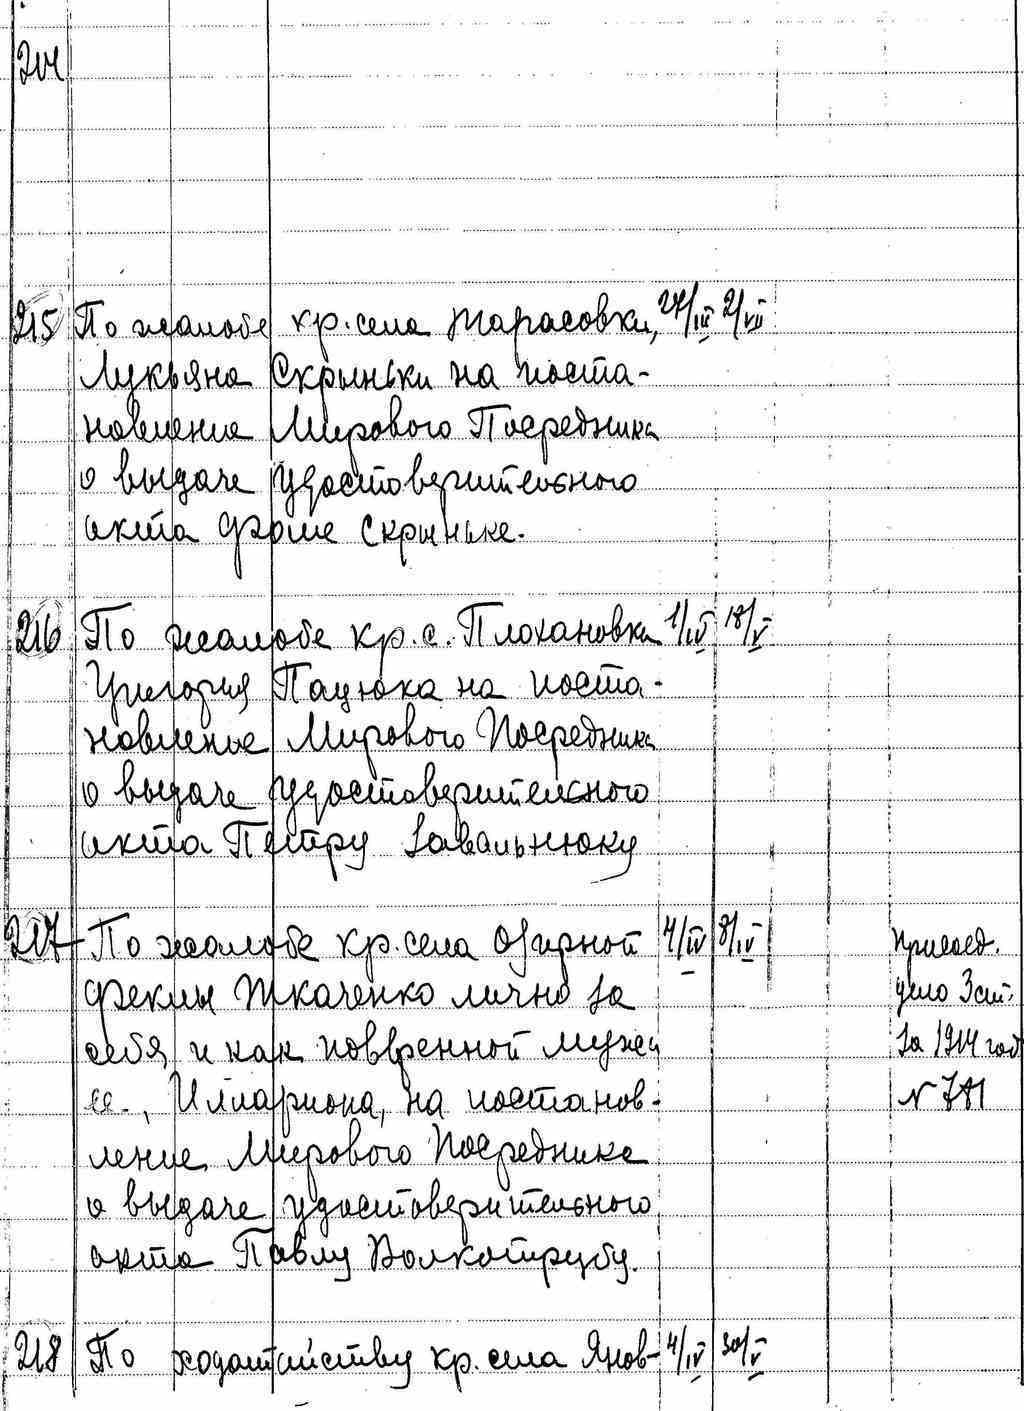 214
215 По жалобе кр. села Тарасовки, 24/III 2/VII
Лукьяна Скрыньки на поста-
новление Мирового Посредника
о выдаче удостоверительного
акта Фоме Скрыньке.
216 По жалобе кр. с. Плохановки 1/IV 18/V
Григория Пацюка на поста-
новление Мирового Посредника
о выдаче удостоверительного
акта Петру Завальнюку
217 По жалобе кр. села Озирной 4/IV 8/IV присоед.
Феклы Ткаченко лично за дело 3 ст.
себя и как поверенной мужа за 1914 год
ее, Илариона, на постанов- N 781
ление Мирового Посредника
о выдаче удостоверительного
акта Павлу Волкотрубу.
218 По ходатайству кр. села Янов- 4/IV 30/V